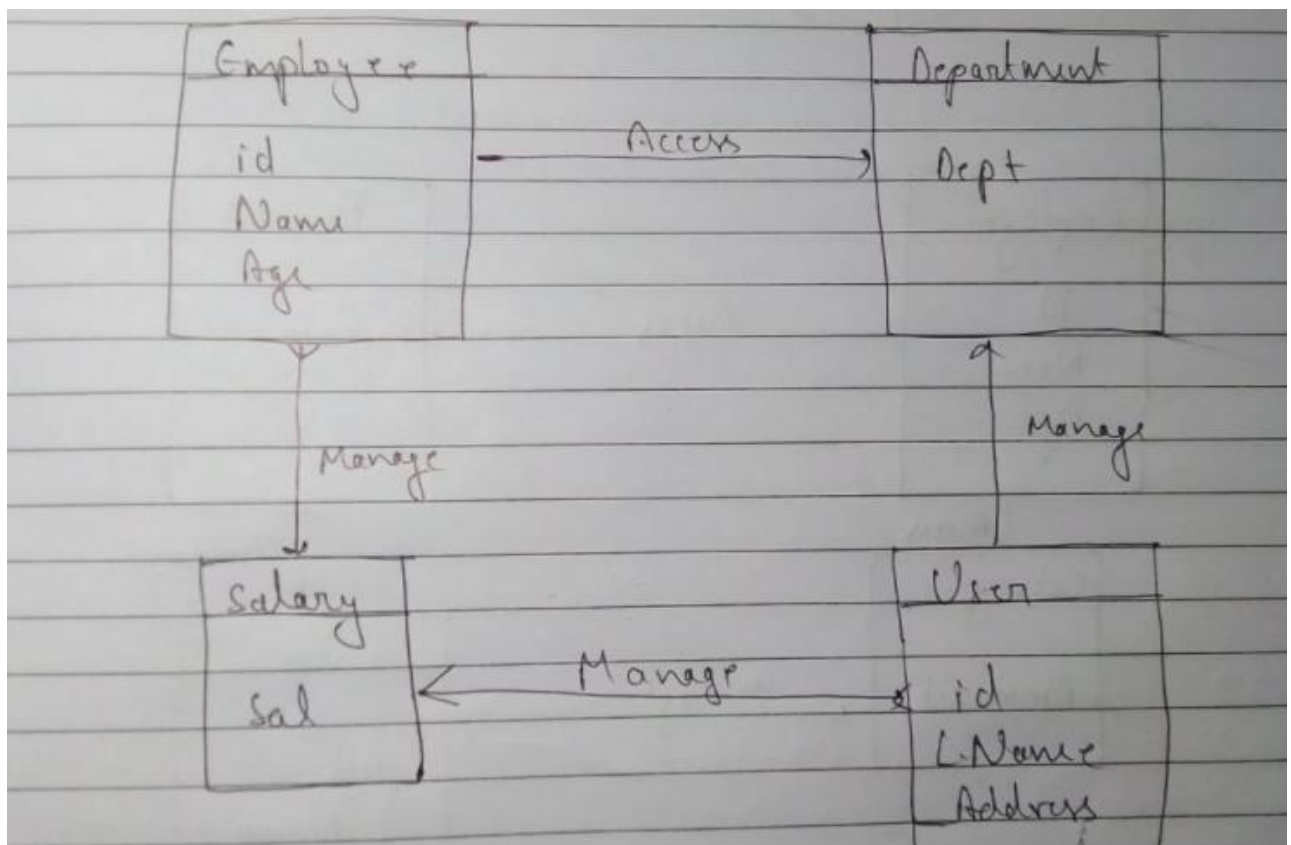 Employee
id
Name
Age
Access
Department
Dept
Manage
Manage
Salary
Sal
Manage
User
id
L.Name
Address